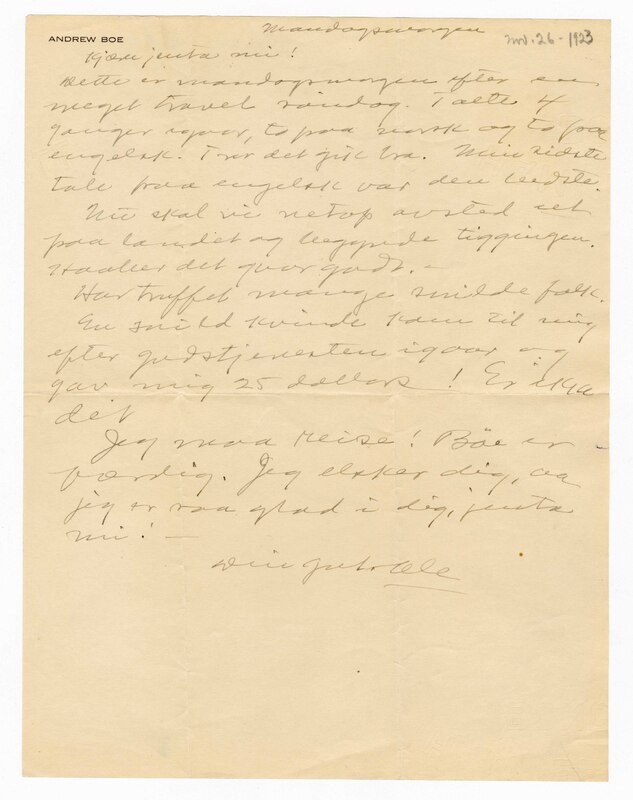 Mandagsmorgen
nov. 26 - 1923
ANDREW BOE
Kjære jenta mi!
Dette er mandagsmorgen efter en
meget travel søndag. Talte 4
ganger igaar, to paa norsk og to paa
engelsk. Tror det gik bra. Min sidste
tale paa engelsk var den bedste.
Nu skal vi netop avsted ut
paa landet og begynde tiggingen.
Haaber det gaar godt. –
Har truffet mange snilde folk.
En snild kvinde kom til mig
efter gudstjenesten igaar og
gav mig 25 dollars! Er ikke
det
Jeg maa reise! Böe er
færdig. Jeg elsker dig, og
jeg er saa glad i dig, jenta
mi! –
Din gut Ole